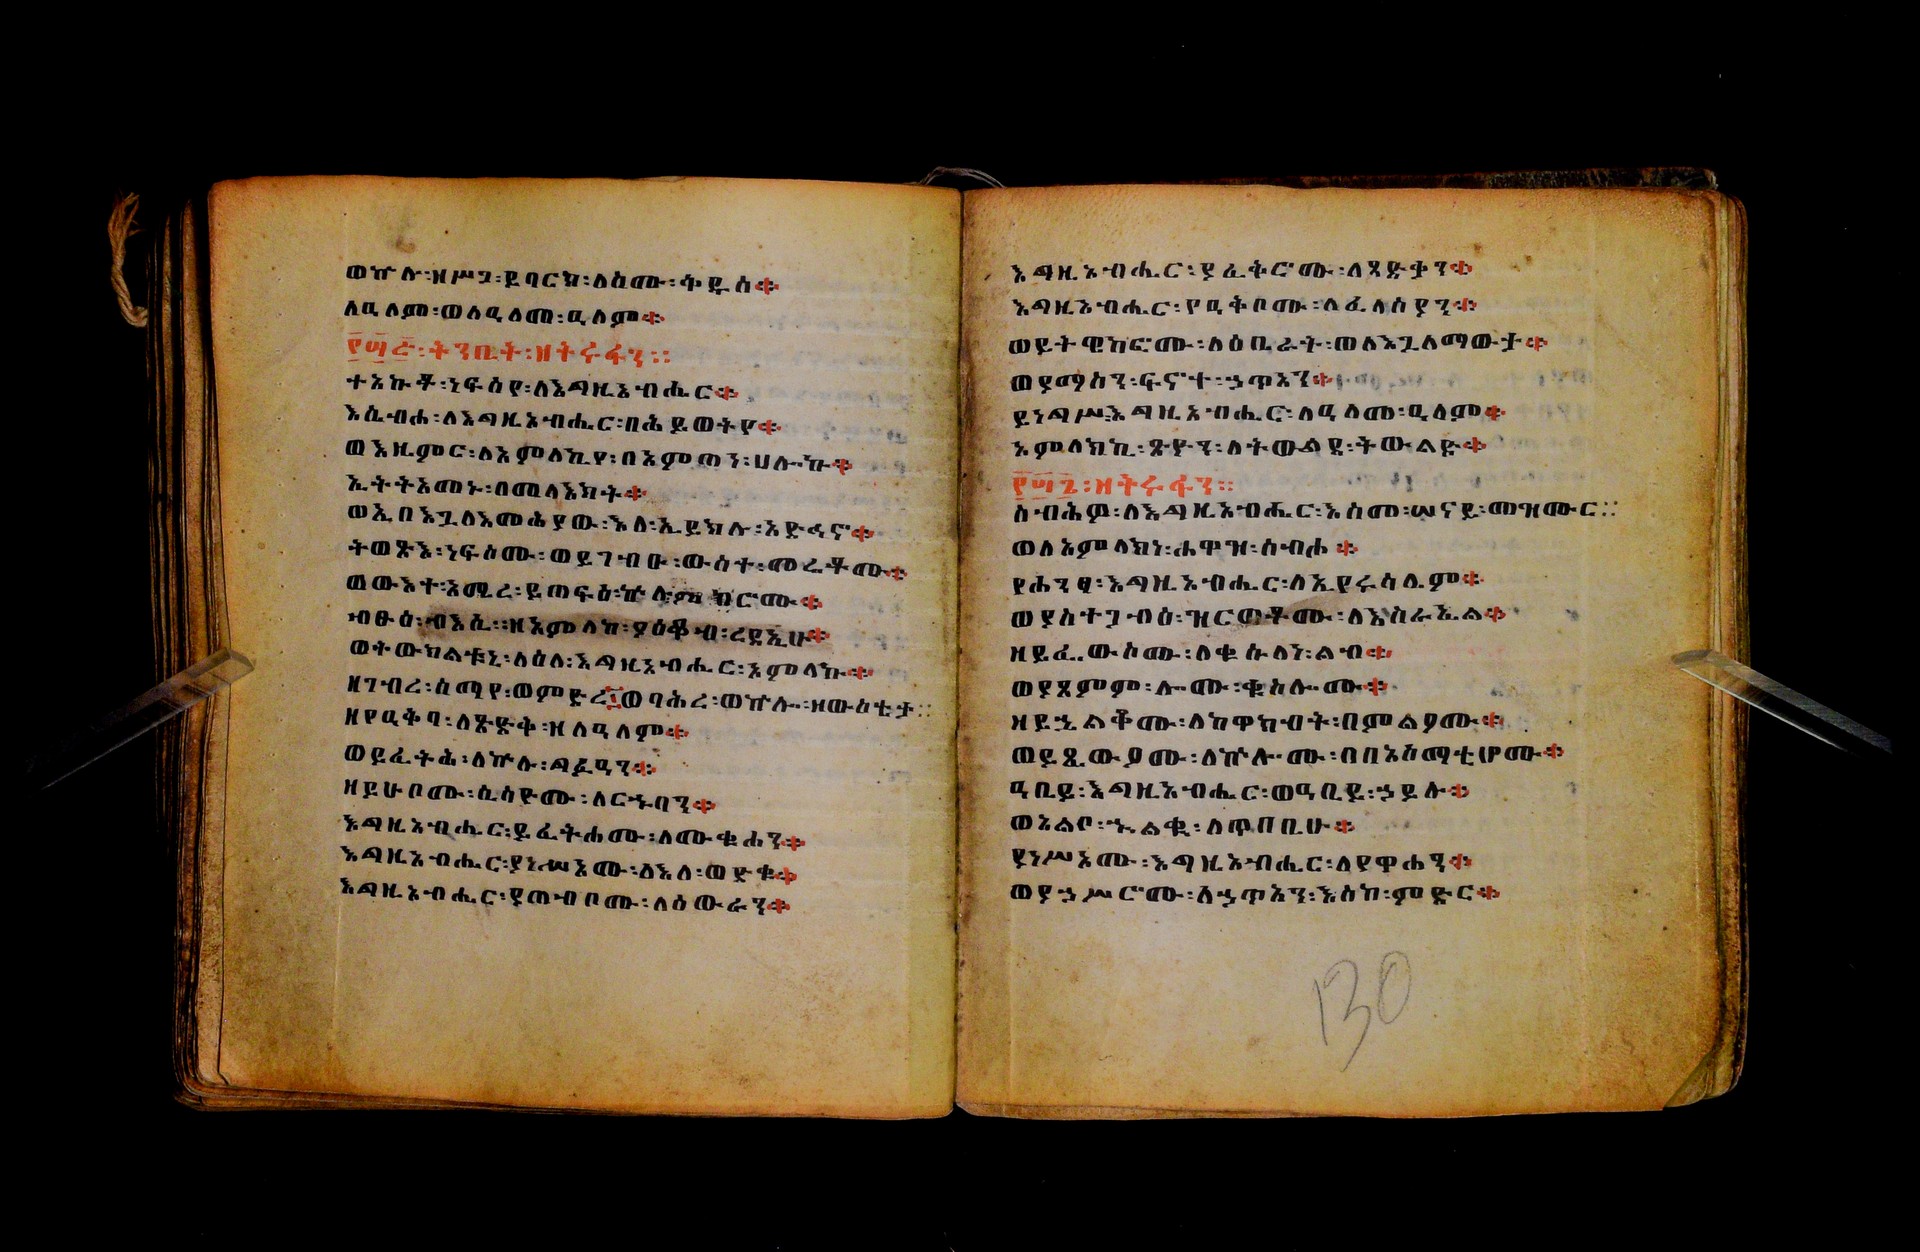 ወኵሉ፡ዘሥጋ፡ይባርክ፡ለስሙ፡ቅዱስ፨
ለዓለም፡ወለዓለመ፡ዓለም፨
፻፵፭፡ትንቢት፡ዘትሩፋን፡፡
ተአኵቶ፡ነፍስየ፡ለእግዚአብሔር፨
እሴብሖ፡ለእግዚአብሔር፡በሕይወትየ፨
ወእዜምር፡ለአምላኪየ፡በአምጣነ፡ሀሎኩ፨
ኢትትአመኑ፡በመላእክት፨
ወኢበእጓለእመሕያው፡እለ፡ኢይክሉ፡አድኅኖ፨
ትወጽእ፡ነፍሶሙ፡ወይገብኡ፡ውስተ፡መሬቶሙ፨
ወውእተ፡አሚረ፡ይጠፍዕ፡ኵሉ፡ምክሮሙ፨
ብፁዕ፡ብእሲ፡ዘአምላከ፡ያዕቆብ፡ረዳኢሁ፨
ወትውክልቱኒ፡ላዕለ፡እግዚአብሔር፡አምላኩ፨
ዘገብረ፡ሰማየ፡ወምድረ፡ወባሕረ፡ወኵሎ፡ዘውስቴታ፡፡
ዘየዓቅብ፡ለጽድቅ፡ዘለዓለም፨
ወይፈትሕ፡ለኵሉ፡ግፉዓን፨
ዘይሁቦሙ፡ሲሳዮሙ፡ለርኁባን፨
እግዚአብሔር፡ይፈትሖሙ፡ለሙቁሐን፨
እግዚአብሔር፡ያነሥኦሙ፡ለእለ፡ወድቁ፨
እግዚአብሔር፡ያጠብቦሙ፡ለዕውራን፨
እግዚአብሔር፡ያፈቅሮሙ፡ለጻድቃን፨
እግዚአብሔር፡የዓቅቦሙ፡ለፈላስያን፨
ወይትዌከፎሙ፡ለዕቤራት፡ወለእጓለማውታ፨
ወያማስን፡ፍኖተ፡ኃጥአን፨
ይነግሥ፡እግዚአብሔር፡ለዓለመ፡ዓለም፨
አምላክኪ፡ጽዮን፡ለትውልደ፡ትውልድ፨
፻፵፮፡ዘትሩፋን፡፡
ሰብሕዎ፡ለእግዚአብሔር፡እስመ፡ሠናይ፡መዝሙር፡፡
ወለአምላክነ፡ሐዋዝ፡ሰብሖ፨
የሐንፃ፡እግዚአብሔር፡ለኢየሩሳሌም፨
ወያስተጋብዕ፡ዝርወቶሙ፡ለእስራኤል፨
ዘይፌውሶሙ፡ለቁሱላነ፡ልብ፨
ወይጸምም፡ሎሙ፡ቁስሎሙ፨
ዘይኌልቆሙ፡ለከዋክብት፡በምልዖሙ፨
ወይጼውዖሙ፡ለኵሎሙ፡በበአስማቲሆሙ፨
ዓቢይ፡እግዚአብሔር፡ወዓቢይ፡ኃይሉ፨
ወአልቦ፡ኍልቈ፡ለጥበቢሁ፨
ያነሥኦሙ፡እግዚአብሔር፡ለየዋሐን፨
ወያኃሥሮሙ፡ለኃጥአን፡እስከ፡ምድር፨
130